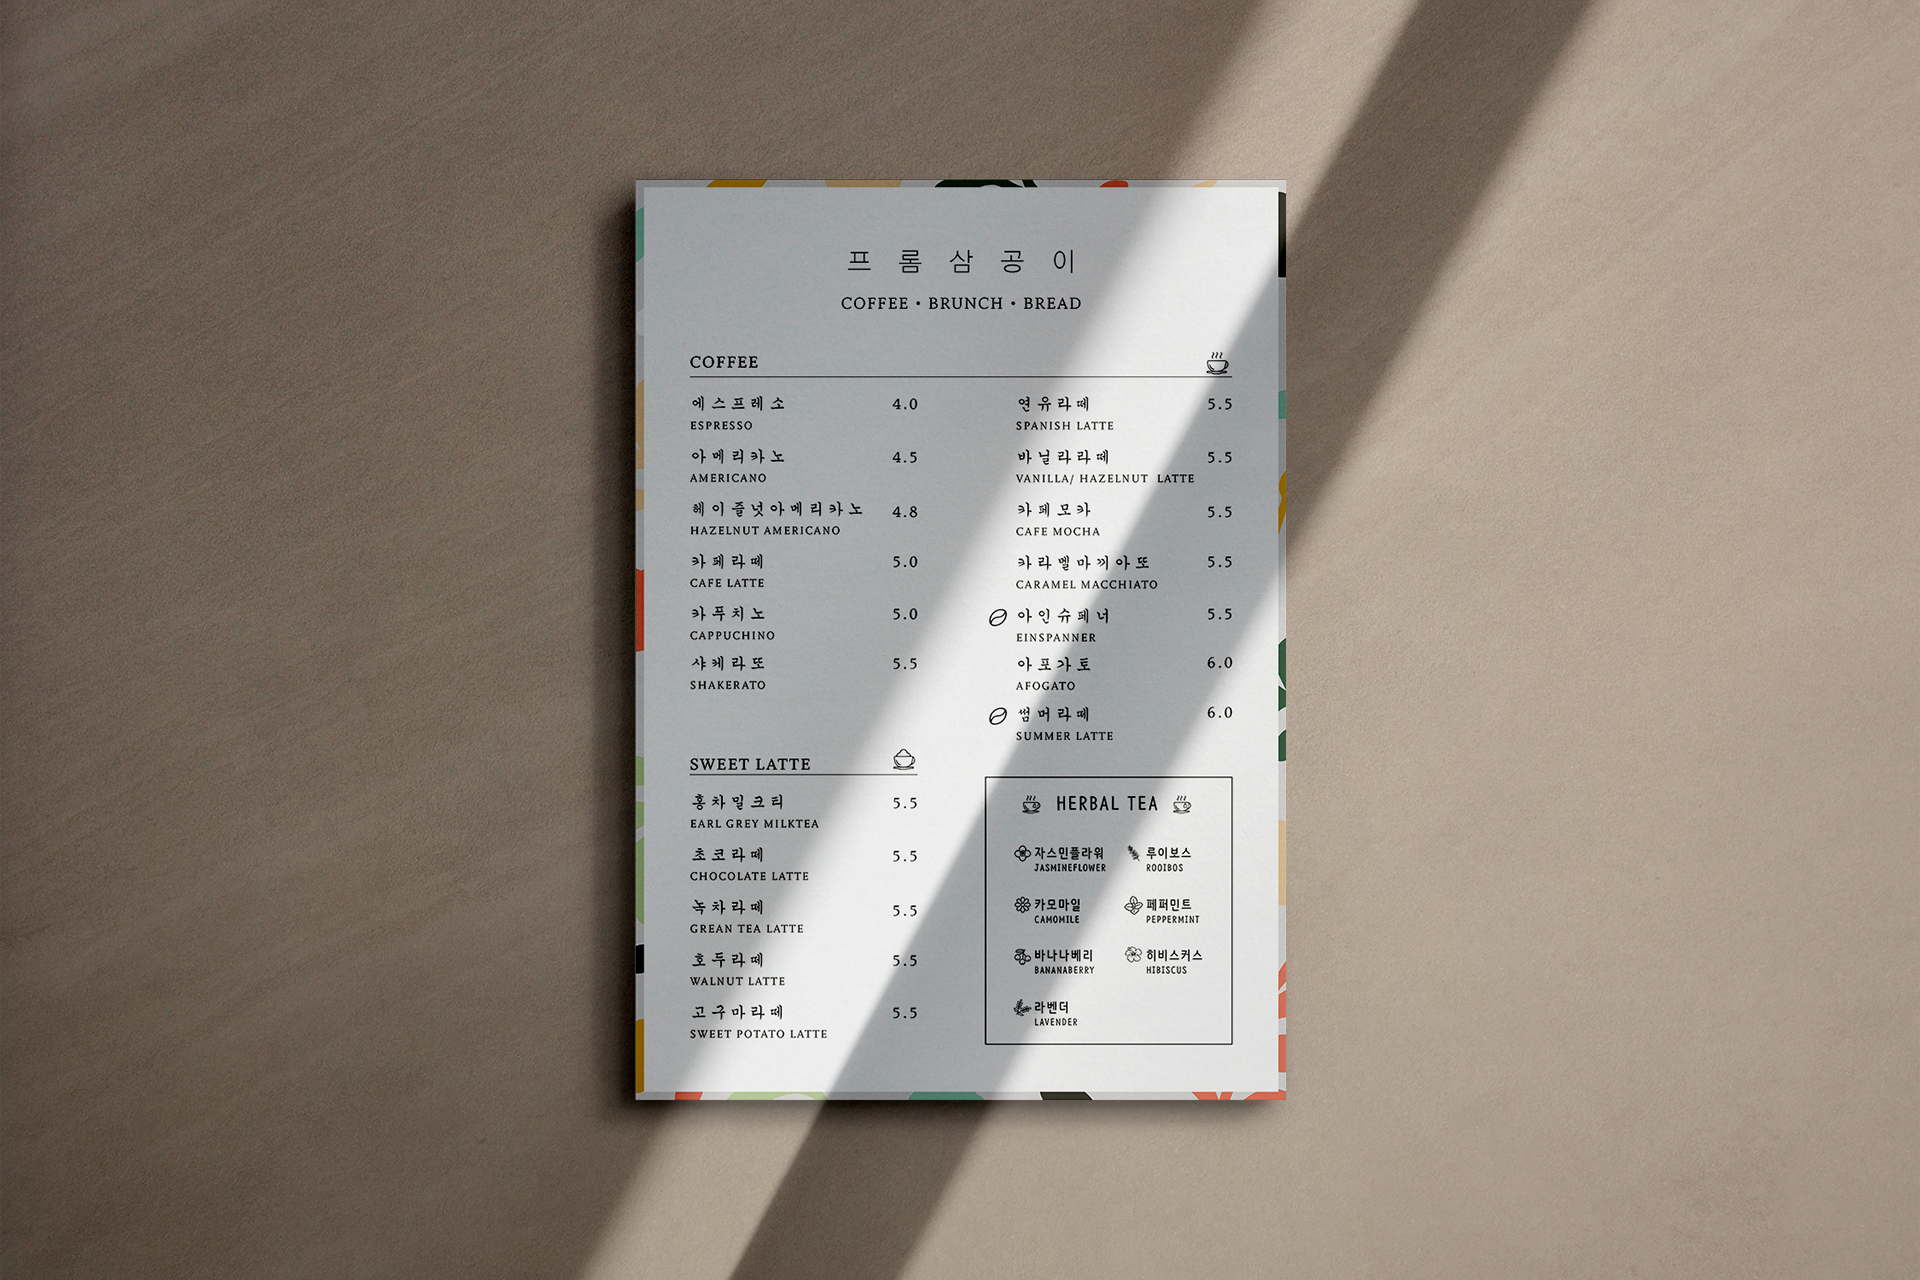 프롬삼공이
COFFEE • BRUNCH • BREAD
COFFEE
에스프레소 4.0
ESPRESSO
아메리카노 4.5
AMERICANO
헤이즐넛아메리카노 4.8
HAZELNUT AMERICANO
카페라떼 5.0
CAFE LATTE
카푸치노 5.0
CAPPUCHINO
샤케라또 5.5
SHAKERATO
연유라떼 5.5
SPANISH LATTE
바닐라라떼 5.5
VANILLA/ HAZELNUT LATTE
카페모카 5.5
CAFE MOCHA
카라멜마끼아또 5.5
CARAMEL MACCHIATO
아인슈페너 5.5
EINSPANNER
아포가토 6.0
AFOGATO
썸머라떼 6.0
SUMMER LATTE
SWEET LATTE
홍차밀크티 5.5
EARL GREY MILKTEA
초코라떼 5.5
CHOCOLATE LATTE
녹차라떼 5.5
GREAN TEA LATTE
호두라떼 5.5
WALNUT LATTE
고구마라떼 5.5
SWEET POTATO LATTE
HERBAL TEA
자스민플라워 루이보스
JASMINEFLOWER ROOIBOS
카모마일 페퍼민트
CAMOMILE PEPPERMINT
바나나베리 히비스커스
BANANABERRY HIBISCUS
라벤더
LAVENDER